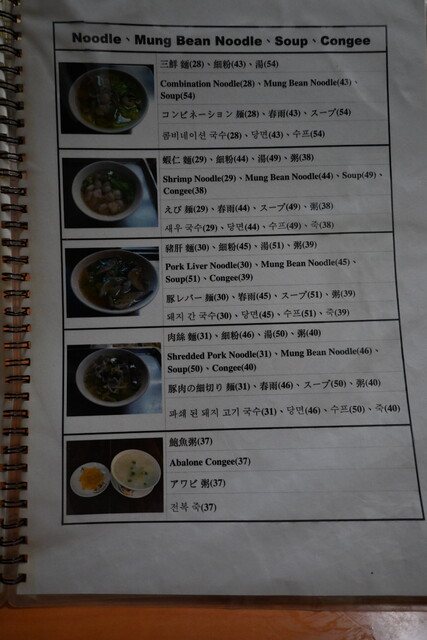 Noodle、Mung Bean Noodle、Soup、Congee
三鮮 麵(28)、細粉(43)、湯(54)
Combination Noodle(28)、Mung Bean Noodle(43)、
Soup(54)
コンビネーション 麵(28)、春雨(43)、スープ(54)
콤비네이션 국수(28)、당면(43)、수프(54)
蝦仁 麵(29)、細粉(44)、湯(49)、粥(38)
Shrimp Noodle(29)、Mung Bean Noodle(44)、Soup(49)、
Congee(38)
えび 麵(29)、春雨(44)、スープ(49)、粥(38)
새우 국수(29)、당면(44)、수프(49)、죽(38)
豬肝 麵(30)、細粉(45)、湯(51)、粥(39)
Pork Liver Noodle(30)、Mung Bean Noodle(45)、
Soup(51)、Congee(39)
豚レバー 麵(30)、春雨(45)、スープ(51)、粥(39)
돼지 간 국수(30)、당면(45)、수프(51)、죽(39)
肉絲 麵(31)、細粉(46)、湯(50)、粥(40)
Shredded Pork Noodle(31)、Mung Bean Noodle(46)、
Soup(50)、Congee(40)
豚肉の細切り 麵(31)、春雨(46)、スープ(50)、粥(40)
파쇄 된 돼지 고기 국수(31)、당면(46)、수프(50)、죽(40)
鮑魚粥(37)
Abalone Congee(37)
アワビ 粥(37)
전복 죽(37)